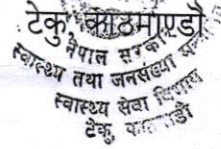 टेकु, काठमाण्डौ
नेपाल सरकार
स्वास्थ्य तथा जनसंख्या
स्वास्थ्य सेवा विभाग
टेकु, काठमाडौं